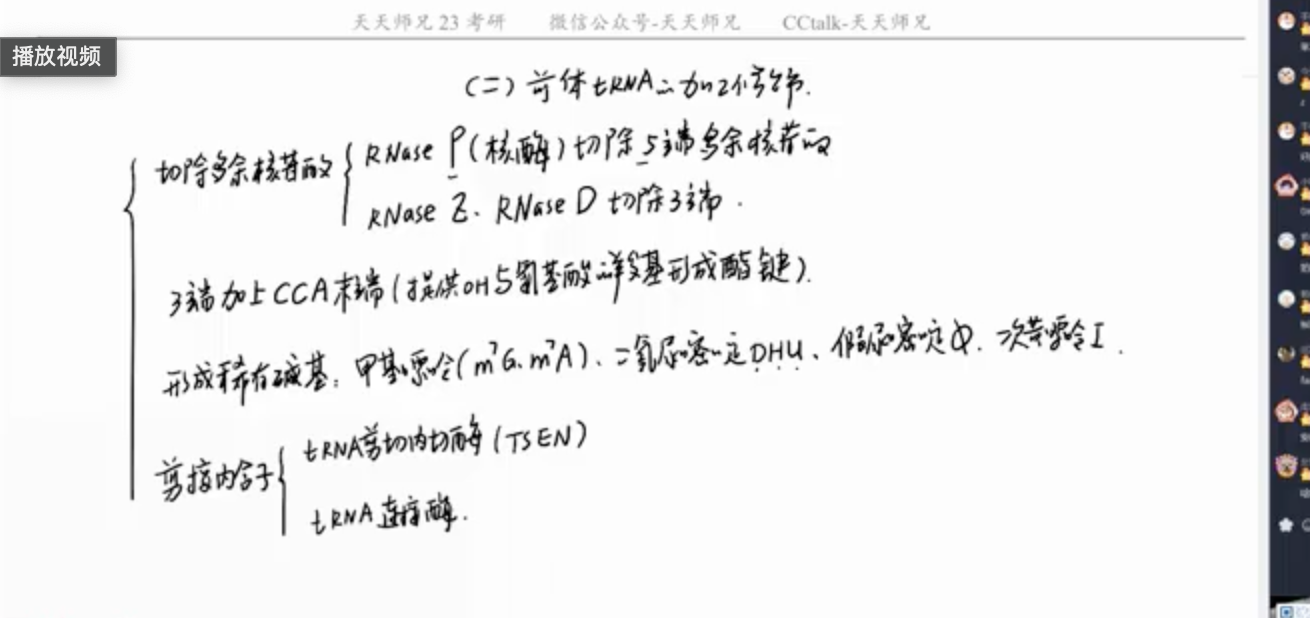 天天师兄 23 考研 微信公众号-天天师兄 CCtalk-天天师兄
播放视频
(二) 前体tRNA的加工修饰.
切除多余核苷酸
RNase P(核酶)切除5'端多余核苷酸
RNase Z、RNase D 切除3'端.
3'端加上CCA末端(提供OH与氨基酸羧基形成酯键).
形成稀有碱基: 甲基嘌呤(m⁷G、m⁷A)、二氢尿嘧啶DHU、假尿嘧啶Ψ、次黄嘌呤I.
剪接内含子
tRNA剪切内切酶(TSEN)
tRNA连接酶.